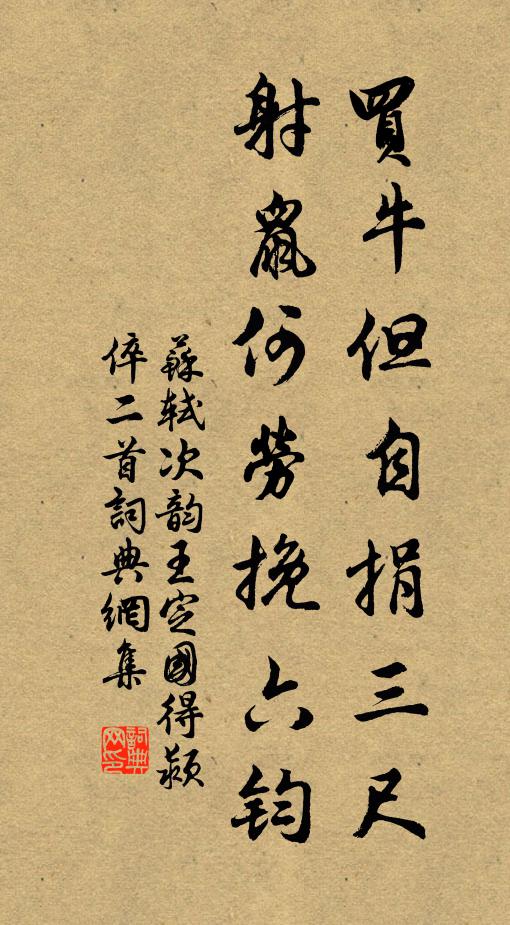 買牛但自捐三尺
射鼠何勞挽六鈞
蘇軾次韵王定國得潁
倅二首詞典網集
詞典
网印